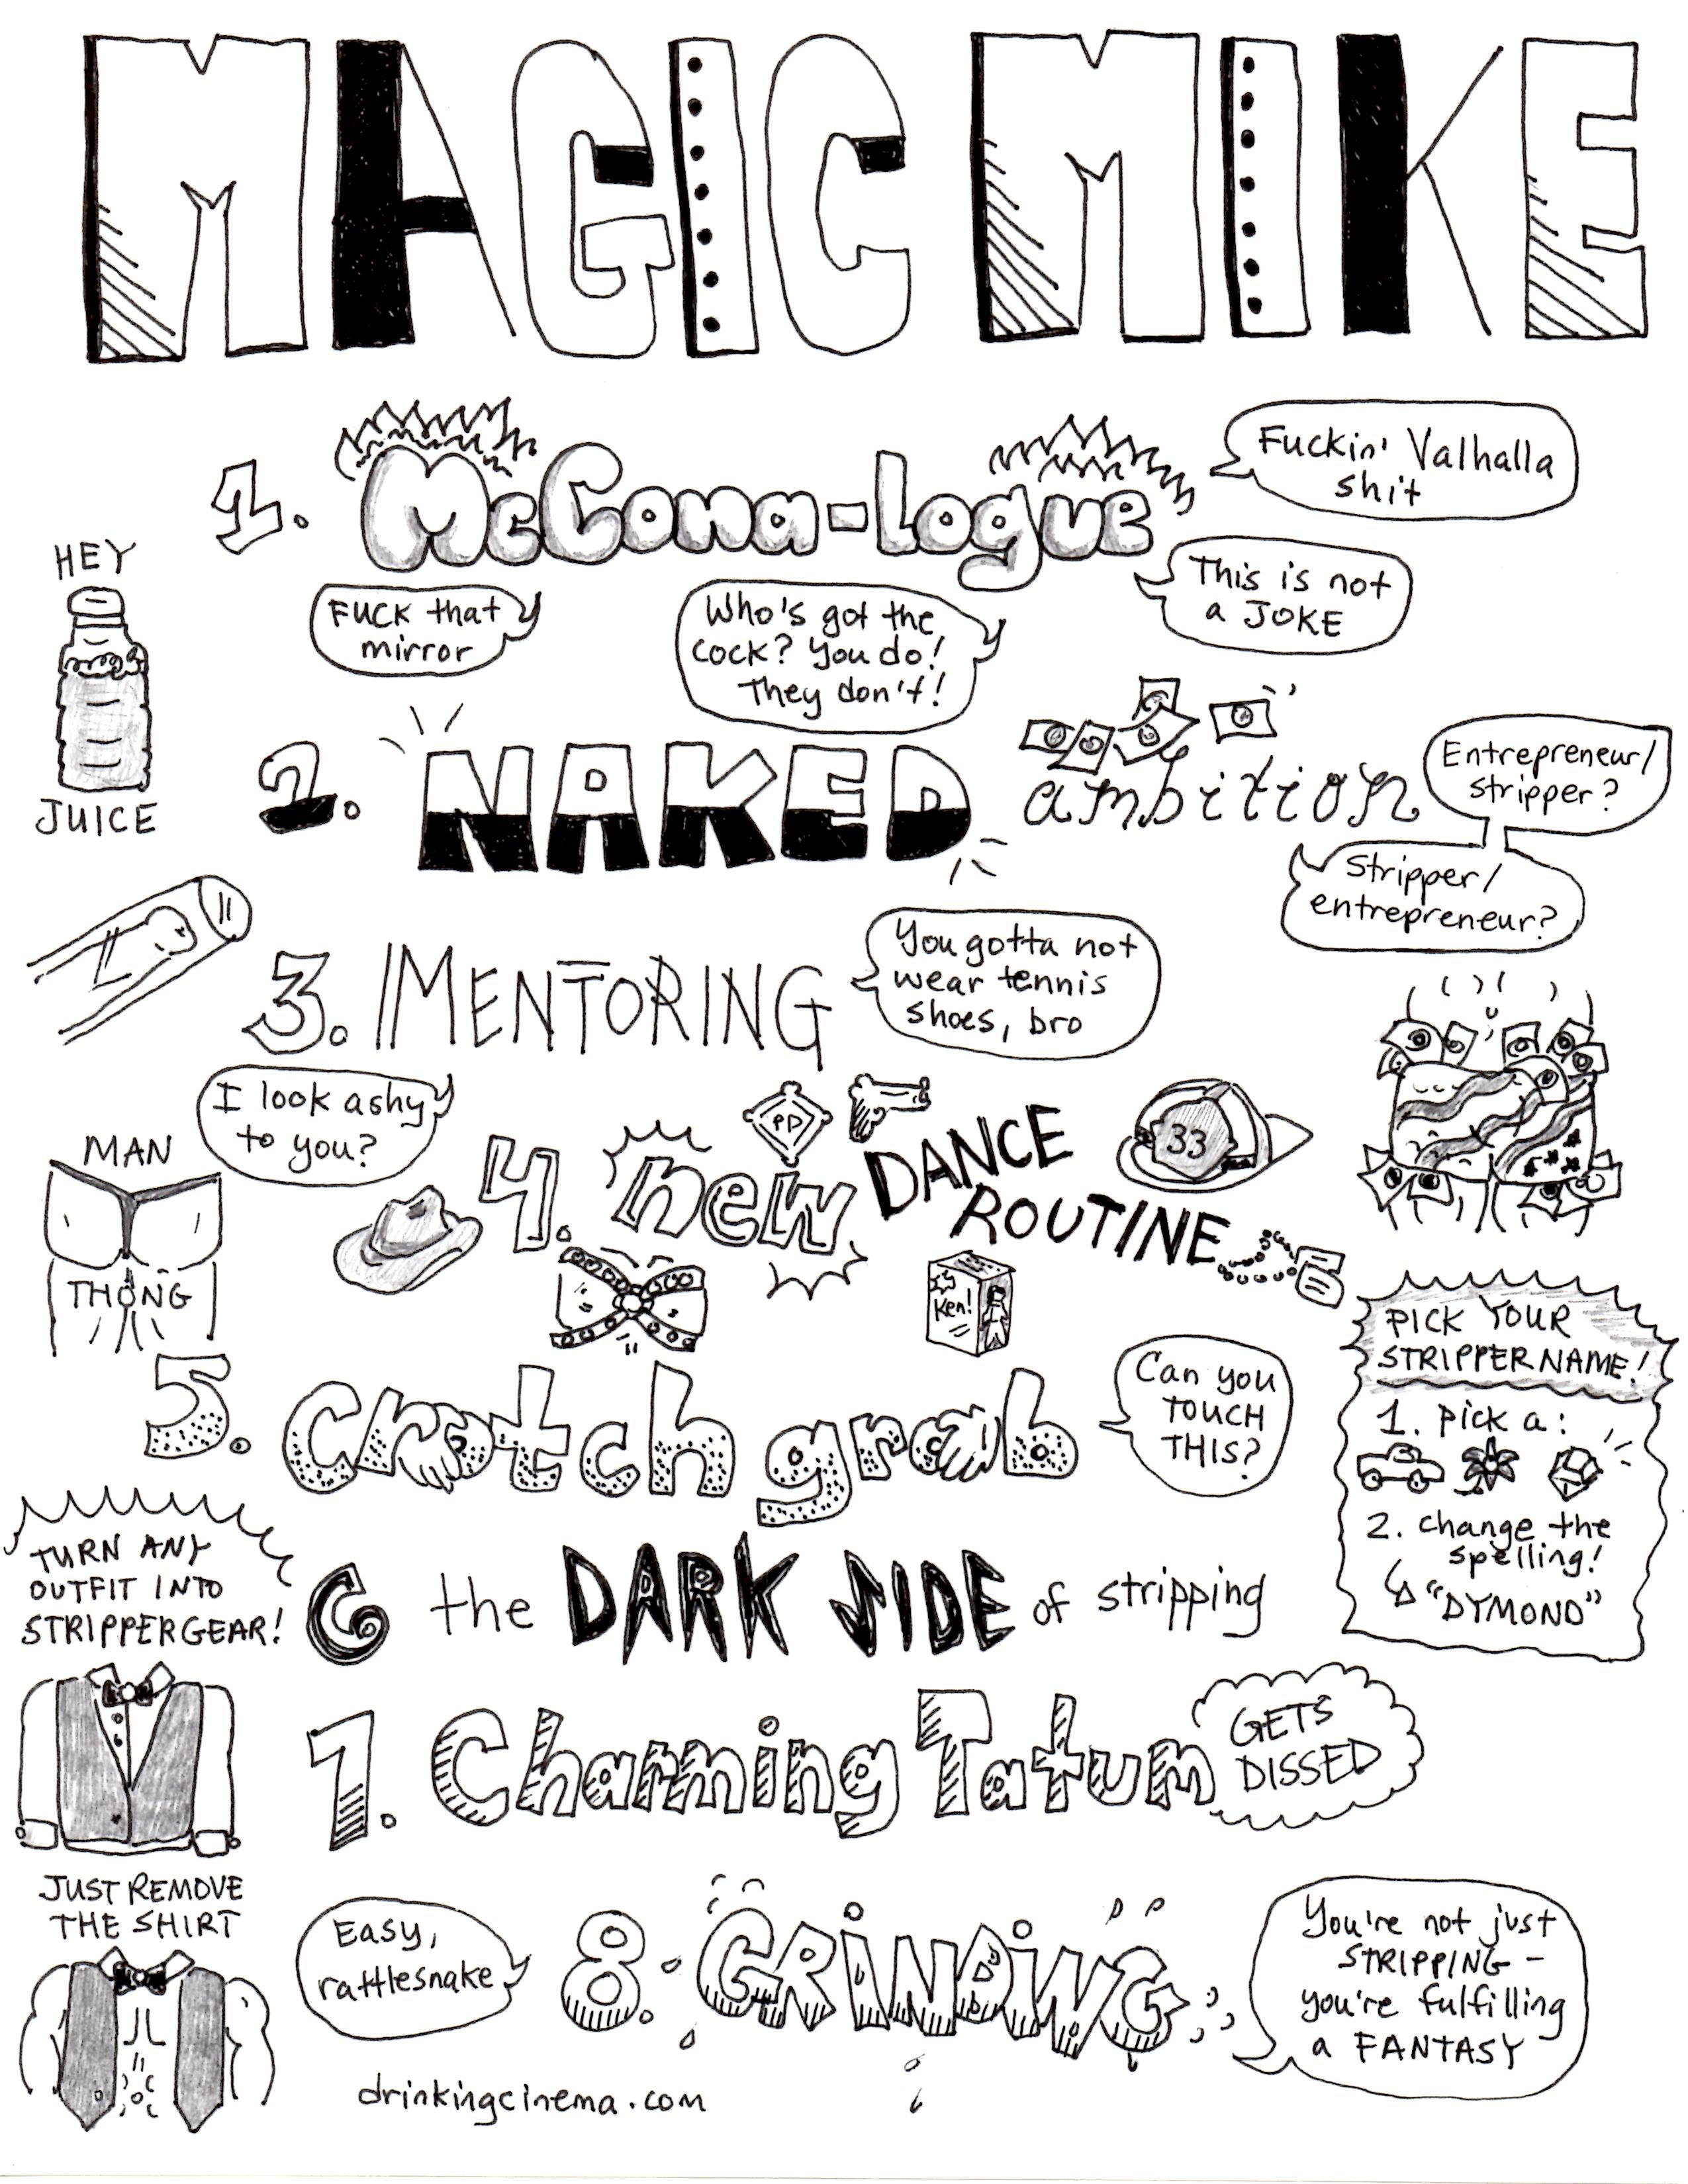 MAGIC MIKE
1. McCona-logue
Fuckin' Valhalla
shit
This is not
a JOKE
FUCK that
mirror
Who's got the
cock? You do!
They don't!
HEY
JUICE
2. NAKED ambition
Entrepreneur/
stripper?
Stripper/
entrepreneur?
3. MENTORING
You gotta not
wear tennis
shoes, bro
I look ashy
to you?
MAN
THONG
4. new DANCE
ROUTINE
PD
33
Ken!
5. Crotch grab
Can you
TOUCH
THIS?
PICK YOUR
STRIPPER NAME!
1. pick a:
2. change the
spelling!
"DYMOND"
TURN ANY
OUTFIT INTO
STRIPPER GEAR!
6 the DARK SIDE of stripping
7. Charming Tatum
GETS
DISSED
JUST REMOVE
THE SHIRT
Easy,
rattlesnake
8. GRiNDiNG
You're not just
STRIPPING -
you're fulfilling
a FANTASY
drinkingcinema.com